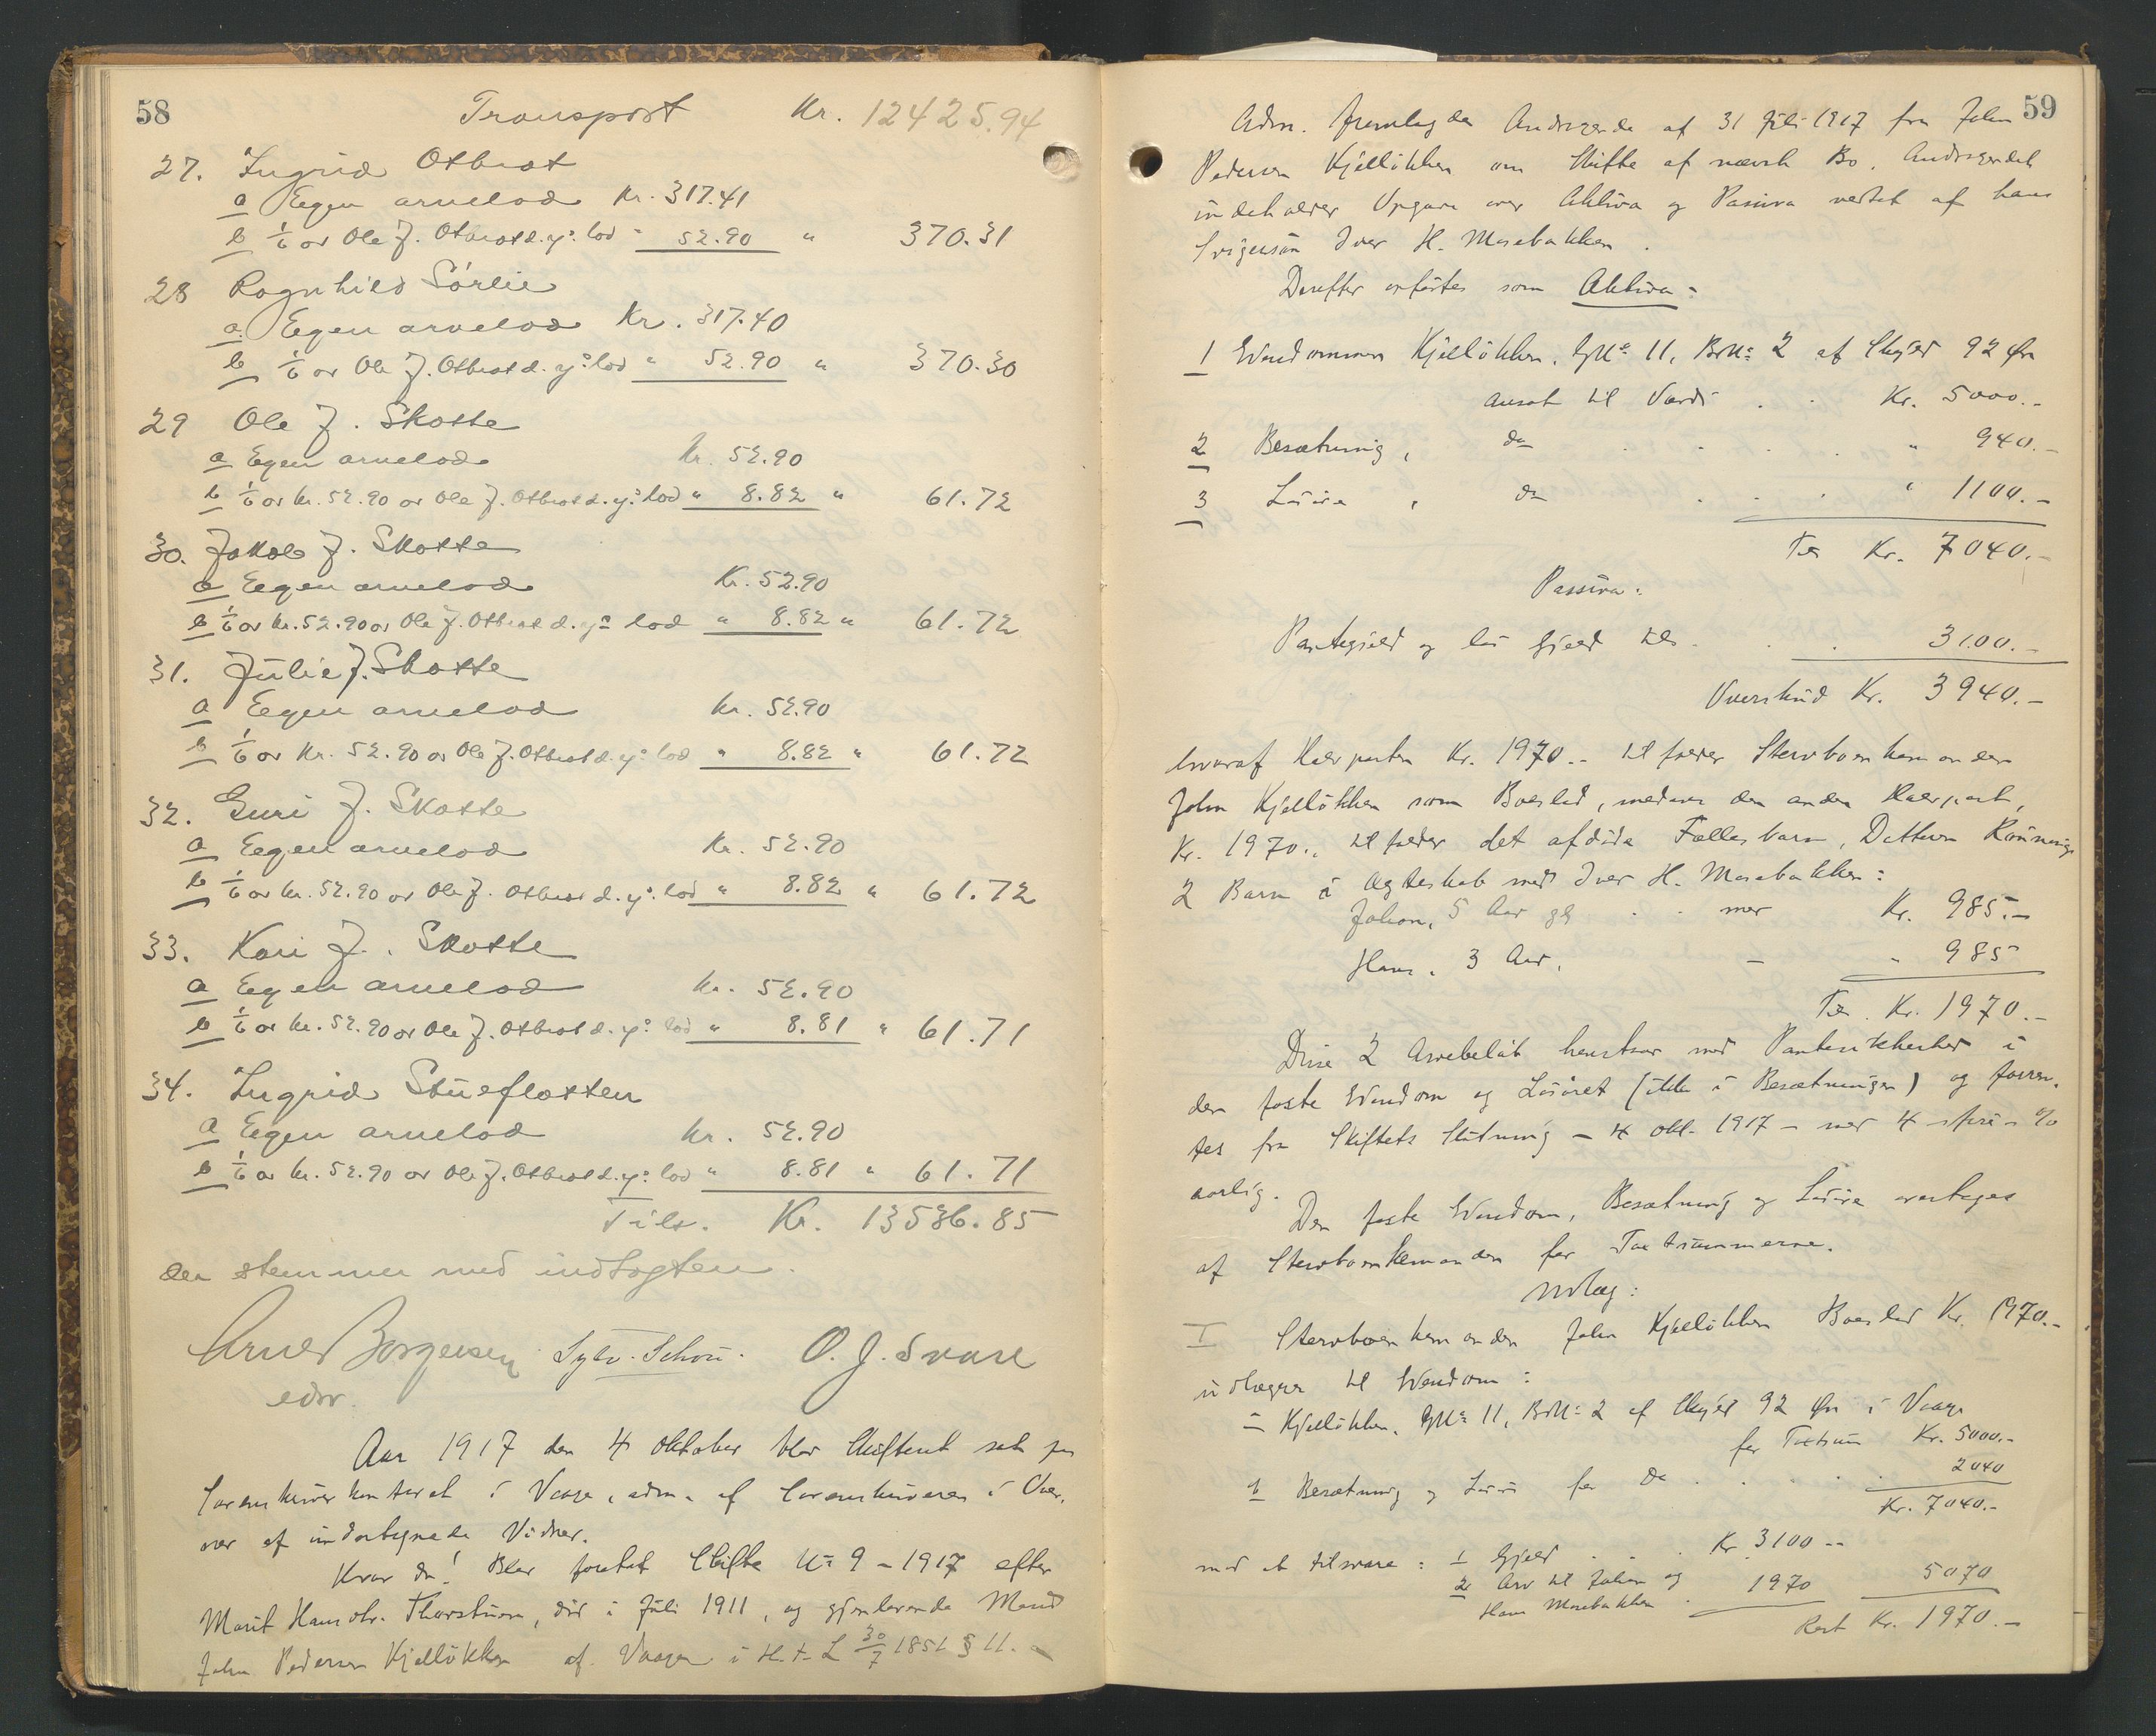 58
Transport Kr. 12425.94
27. Ingrid Otbrot
a Egen arvelod Kr. 317.41
b 1/6 av Ole J. Otbrot d. y:s lod " 52.90 " 370.31
28 Ragnhild Sørlie
a. Egen arvelod Kr. 317.40
b 1/6 av Ole J. Otbrot d. y:s lod " 52.90 " 370.30
29 Ole J. Skotte
a Egen arvelod Kr. 52.90
b 1/6 av kr. 52.90 av Ole J. Otbrot d. y:s lod " 8.82 " 61.72
30. Jakob J. Skotte
a Egen arvelod Kr. 52.90
b 1/6 av kr. 52.90 av Ole J. Otbrot d. y:s lod " 8.82 " 61.72
31. Julie J. Skotte
a Egen arvelod kr. 52.90
b 1/6 av Kr. 52.90 av Ole J. Otbrot d. y:s lod " 8.82 " 61.72
32. Guri J. Skotte
a Egen arvelod Kr. 52.90
b 1/6 av kr. 52.90 av Ole J. Otbrot d. y:s lod " 8.82 " 61.72
33. Kari J. Skotte
a Egen arvelod kr. 52.90
b 1/6 av kr. 52.90 av Ole J. Otbrot d. y:s lod " 8.81 " 61.71
34. Ingrid Stueflotten
a Egen arvelod kr. 52.90
b 1/6 av kr. 52.90 av Ole J. Otbrot d. y:s lod " 8.81 " 61.71
Tils. Kr. 13536.85
der stemmer med indtægten.
Arne Borgersen Sylv. Schou. O. J. Svare
edsv.
Aar 1917 den 4 Oktober blev Skifteret sat paa
Sorenskriverkontoret i Vaage, adm. af Sorenskriveren i Over-
vær af undertegnede Vidner.
Hvor da! Blev foretat Skifte No 9 - 1917 efter
Marit Hansdtr. Thorstuen, død i Juli 1911, og gjenlevende Mand
John Pedersen Kjelløkken af Vaage i H. t. L 30/7 1851 § 11.
59
Adm. fremlagde Andragende af 31 Juli 1917 fra John
Pedersen Kjelløkken om Skifte af nævnte Bo. Andragendet
indeholder Opgave over Aktiva og Passiva vedtat af hans
Svigersøn Iver H. Mosebakken.
Derefter opførtes som Aktiva:
1 Eiendommen Kjelløkken, GNo 11, BrNo 2 af Skyld 92 Øre
ansat til Værdi . . Kr. 5000.-
2 Besætning, do . . . . " 940.-
3 Løsøre, do . . . " 1100.-
Til Kr. 7040.-
Passiva:
Pantegjeld og løs Gjeld til . . . 3100.-
Overskud Kr. 3940.-
hvoraf Halvparten Kr. 1970.- tilfalder Sterboenkemanden
John Kjelløkken som Boeslod, medens den anden Halvpart,
Kr. 1970., tilfalder det afdøde Fællesbarn, Datteren Rønnaugs
2 Barn i Ægteskab med Iver H. Mosebakken:
Johan, 5 Aar gl . . med Kr. 985.-
Hans, 3 Aar, - " 985
Til. Kr. 1970.-
Disse 2 Arvebeløb henstaar med Pantesikkerhed i
den faste Eiendom og Løsøret (ikke i Besætningen) og forren-
tes fra Skiftets Slutning - 4 Okt. 1917 - med 4 - fire - %
aarlig.
Den faste Eiendom, Besætning og Løsøre overtages
af Sterboenkemanden for Taxtsummerne.
Udlæg:
I Sterboenkemanden John Kjelløkken Boeslod Kr. 1970.-
udlægges til Eiendom:
1 Kjelløkken, GNo 11, BrNo 2 af Skyld 92 Øre i Vaage
for Taxtsum Kr. 5000.-
2 Besætning og Løsøre for do . . . . . 2040
Kr. 7040.-
mod at tilsvare: 1 Gjeld . . . Kr. 3100.-
2 Arv til Johan og
Hans Mosebakken . 1970 5070
Rest Kr. 1970.-